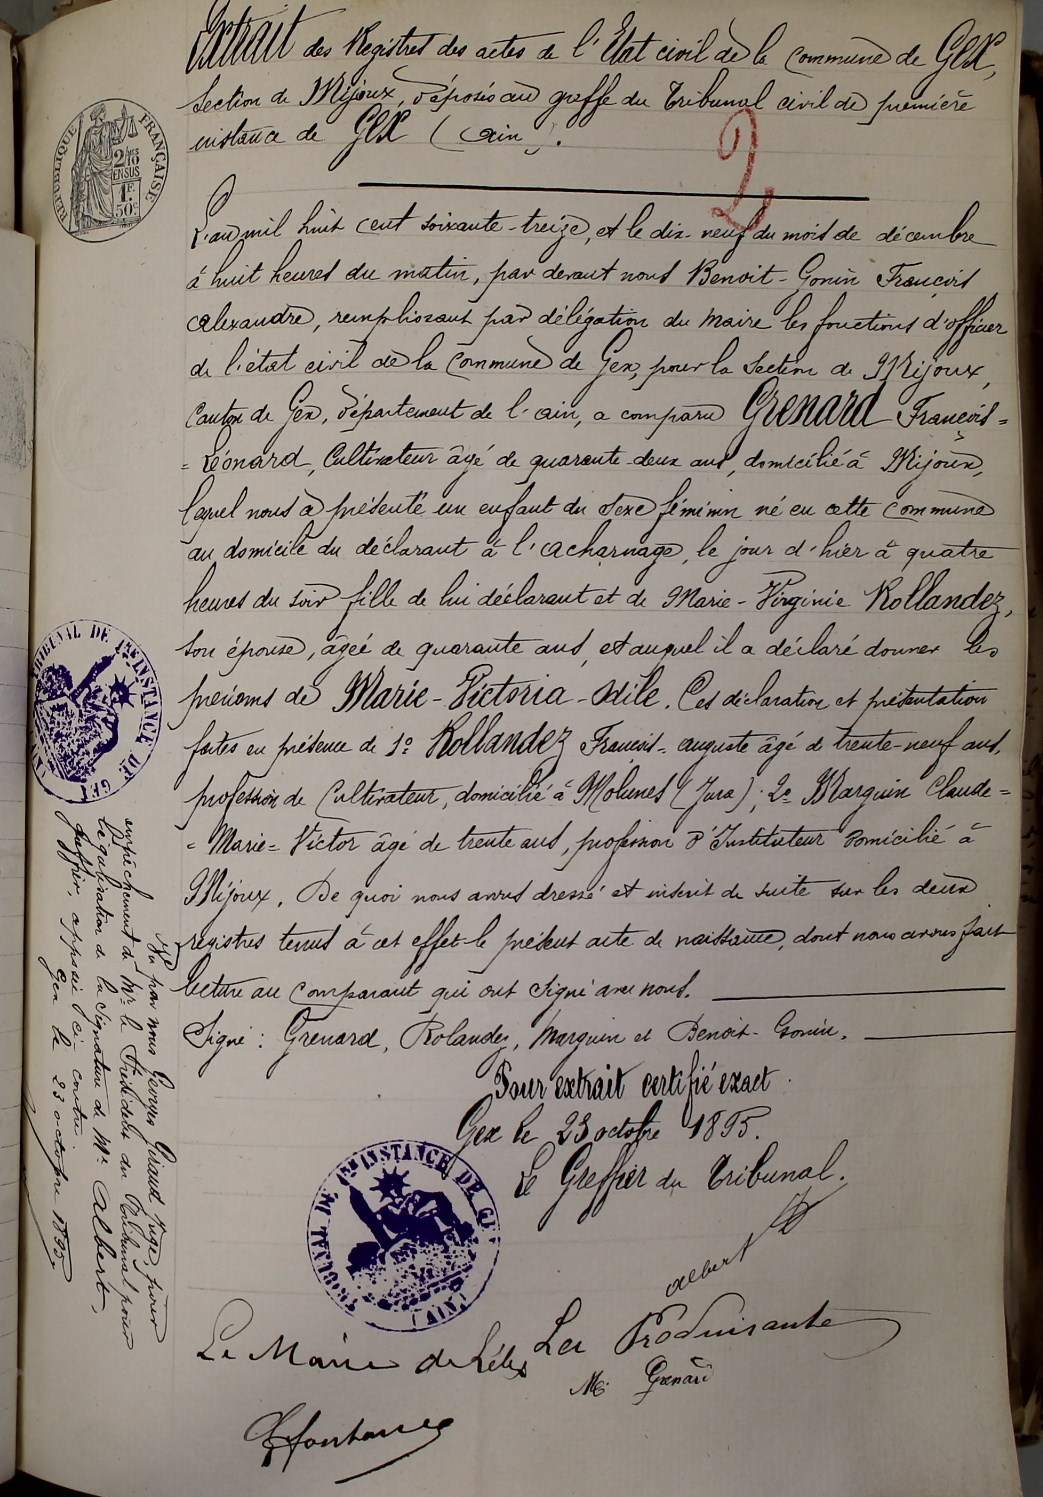 Extrait des Registres des actes de l'Etat civil de la Commune de Gex,
Section de Mijoux, déposés au greffe du Tribunal civil de première
instance de Gex (Ain).
2
RÉPUBLIQUE FRANÇAISE
2/10 EN SUS
1F. 50c
L'an mil huit cent soixante-treize, et le dix-neuf du mois de décembre
à huit heures du matin, par devant nous Benoit-Gonin François
Alexandre, remplissant par délégation du Maire les fonctions d'officier
de l'état civil de la Commune de Gex, pour la Section de Mijoux,
Canton de Gex, département de l'ain, a comparu Grenard François=
=Léonard, Cultivateur âgé de quarante-deux ans, domicilié à Mijoux,
lequel nous a présenté un enfant du sexe féminin né en cette Commune
au domicile du déclarant à l'acharnage, le jour d'hier à quatre
heures du soir fille de lui déclarant et de Marie-Virginie Rollandez,
son épouse, âgée de quarante ans, et auquel il a déclaré donner les
prénoms de Marie-Victoria-Odile. Ces déclaration et présentation
faites en présence de 1º Rollandez François-auguste âgé de trente-neuf ans,
profession de Cultivateur, domicilié à Molunes (Jura); 2º Marguin Claude=
=Marie=Victor âgé de trente ans, profession d'Instituteur domicilié à
Mijoux. De quoi nous avons dressé et inscrit de suite sur les deux
registres tenus à cet effet le présent acte de naissance, dont nous avons fait
lecture au comparant qui ont signé avec nous.
Signé: Grenard, Rolandez, Marguin et Benoit-Gonin.
Pour extrait certifié exact.
Gex le 23 octobre 1895.
Le Greffier du Tribunal.
Albert
TRIBUNAL DE 1re INSTANCE DE GEX
(AIN)
TRIBUNAL DE 1re INSTANCE DE GEX
(AIN)
Vu par nous Georges Giraud, juge, pour
empêchement de Mr le Président du Tribunal pour
légalisation de la signature de Me Albert,
greffier, apposée ci-contre.
Gex le 23 octobre 1895.
Le Maire de Lélex
La Produisante
M. Grenard